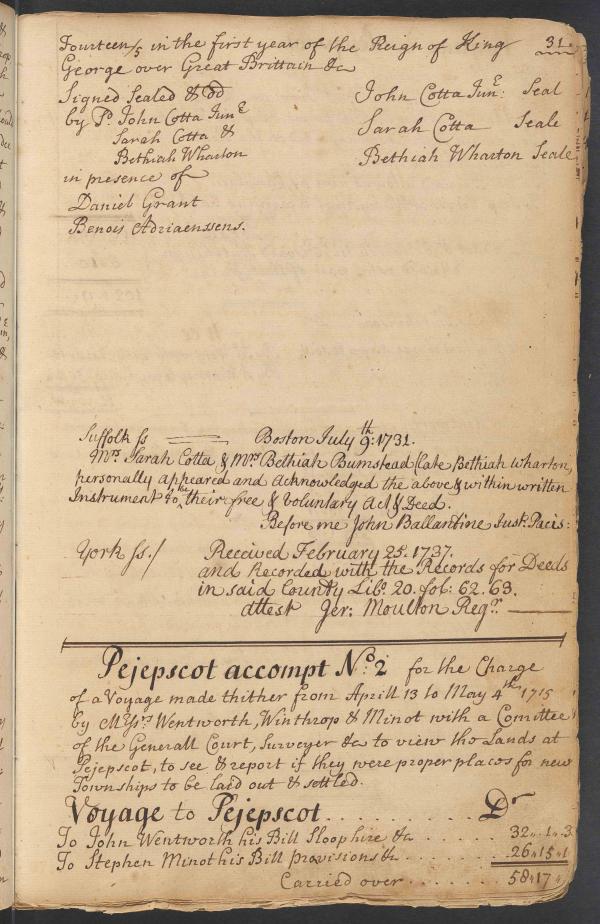 31
Fourteen/5 in the first year of the Reign of King
George over Great Brittain &c
Signed Sealed & DD
by Sd. John Cotta Junr
Sarah Cotta &
Bethiah Wharton
in presence of
Daniel Grant
Benois Adriaenssens.
John Cotta Junr: Seal
Sarah Cotta Seale
Bethiah Wharton Seale
Suffolk ss Boston July 9th: 1731.
Mrs Sarah Cotta, & Mrs Bethiah Bumstead (late Bethiah Wharton,
personally appeared and acknowledged the above & within written
Instrument to be their free & voluntary Act & Deed.
Before me John Ballantine Just. Pacis:
York ss./ Received February 25. 1737.
and Recorded with the Records for Deeds
in said County Libo. 20. fol: 62. 63.
attest Jer: Moulton Regr.
Pejepscot accompt No. 2 for the Charge
of a Voyage made thither from Aprill 13 to May 4th 1715
by Messrs Wentworth, Winthrop & Minot with a Comittee
of the Generall Court, Surveyer &c to view the Lands at
Pejepscot, to see & report if they were proper places for new
Townships to be laid out & settled.
Voyage to Pejepscot . . . . . . . . . Dr
To John Wentworth his Bill Sloop hire &c . . . . . . 32,, 1,, 3
To Stephen Minot his Bill provisions &c . . . . . . 26,, 15,, 1
Carried over . . . . . . . 58,, 17